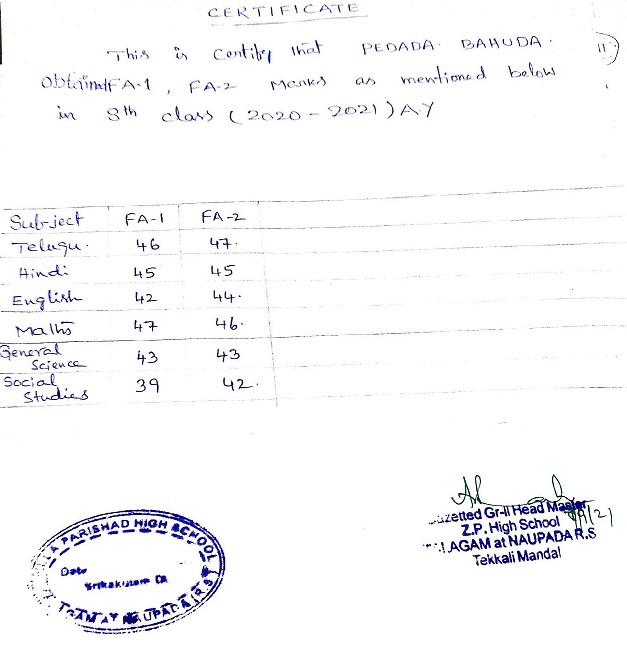 CERTIFICATE
This is Centify that PEDADA. BAHUDA.
obtained FA-1, FA-2 Marks as mentioned below
in 8th class (2020-2021) A.Y
11
Subject FA-1 FA-2
Telugu. 46 47.
Hindi 45 45
English 42 44.
Maths 47 46.
General Science 43 43
Social Studies 39 42.
PARISHAD HIGH SCHOOL
Date
Srikakulam Dt
NAUPADA (R.S)
Gr-II Head Master
Z.P. High School
AGAM at NAUPADA R.S
Tekkali Mandal